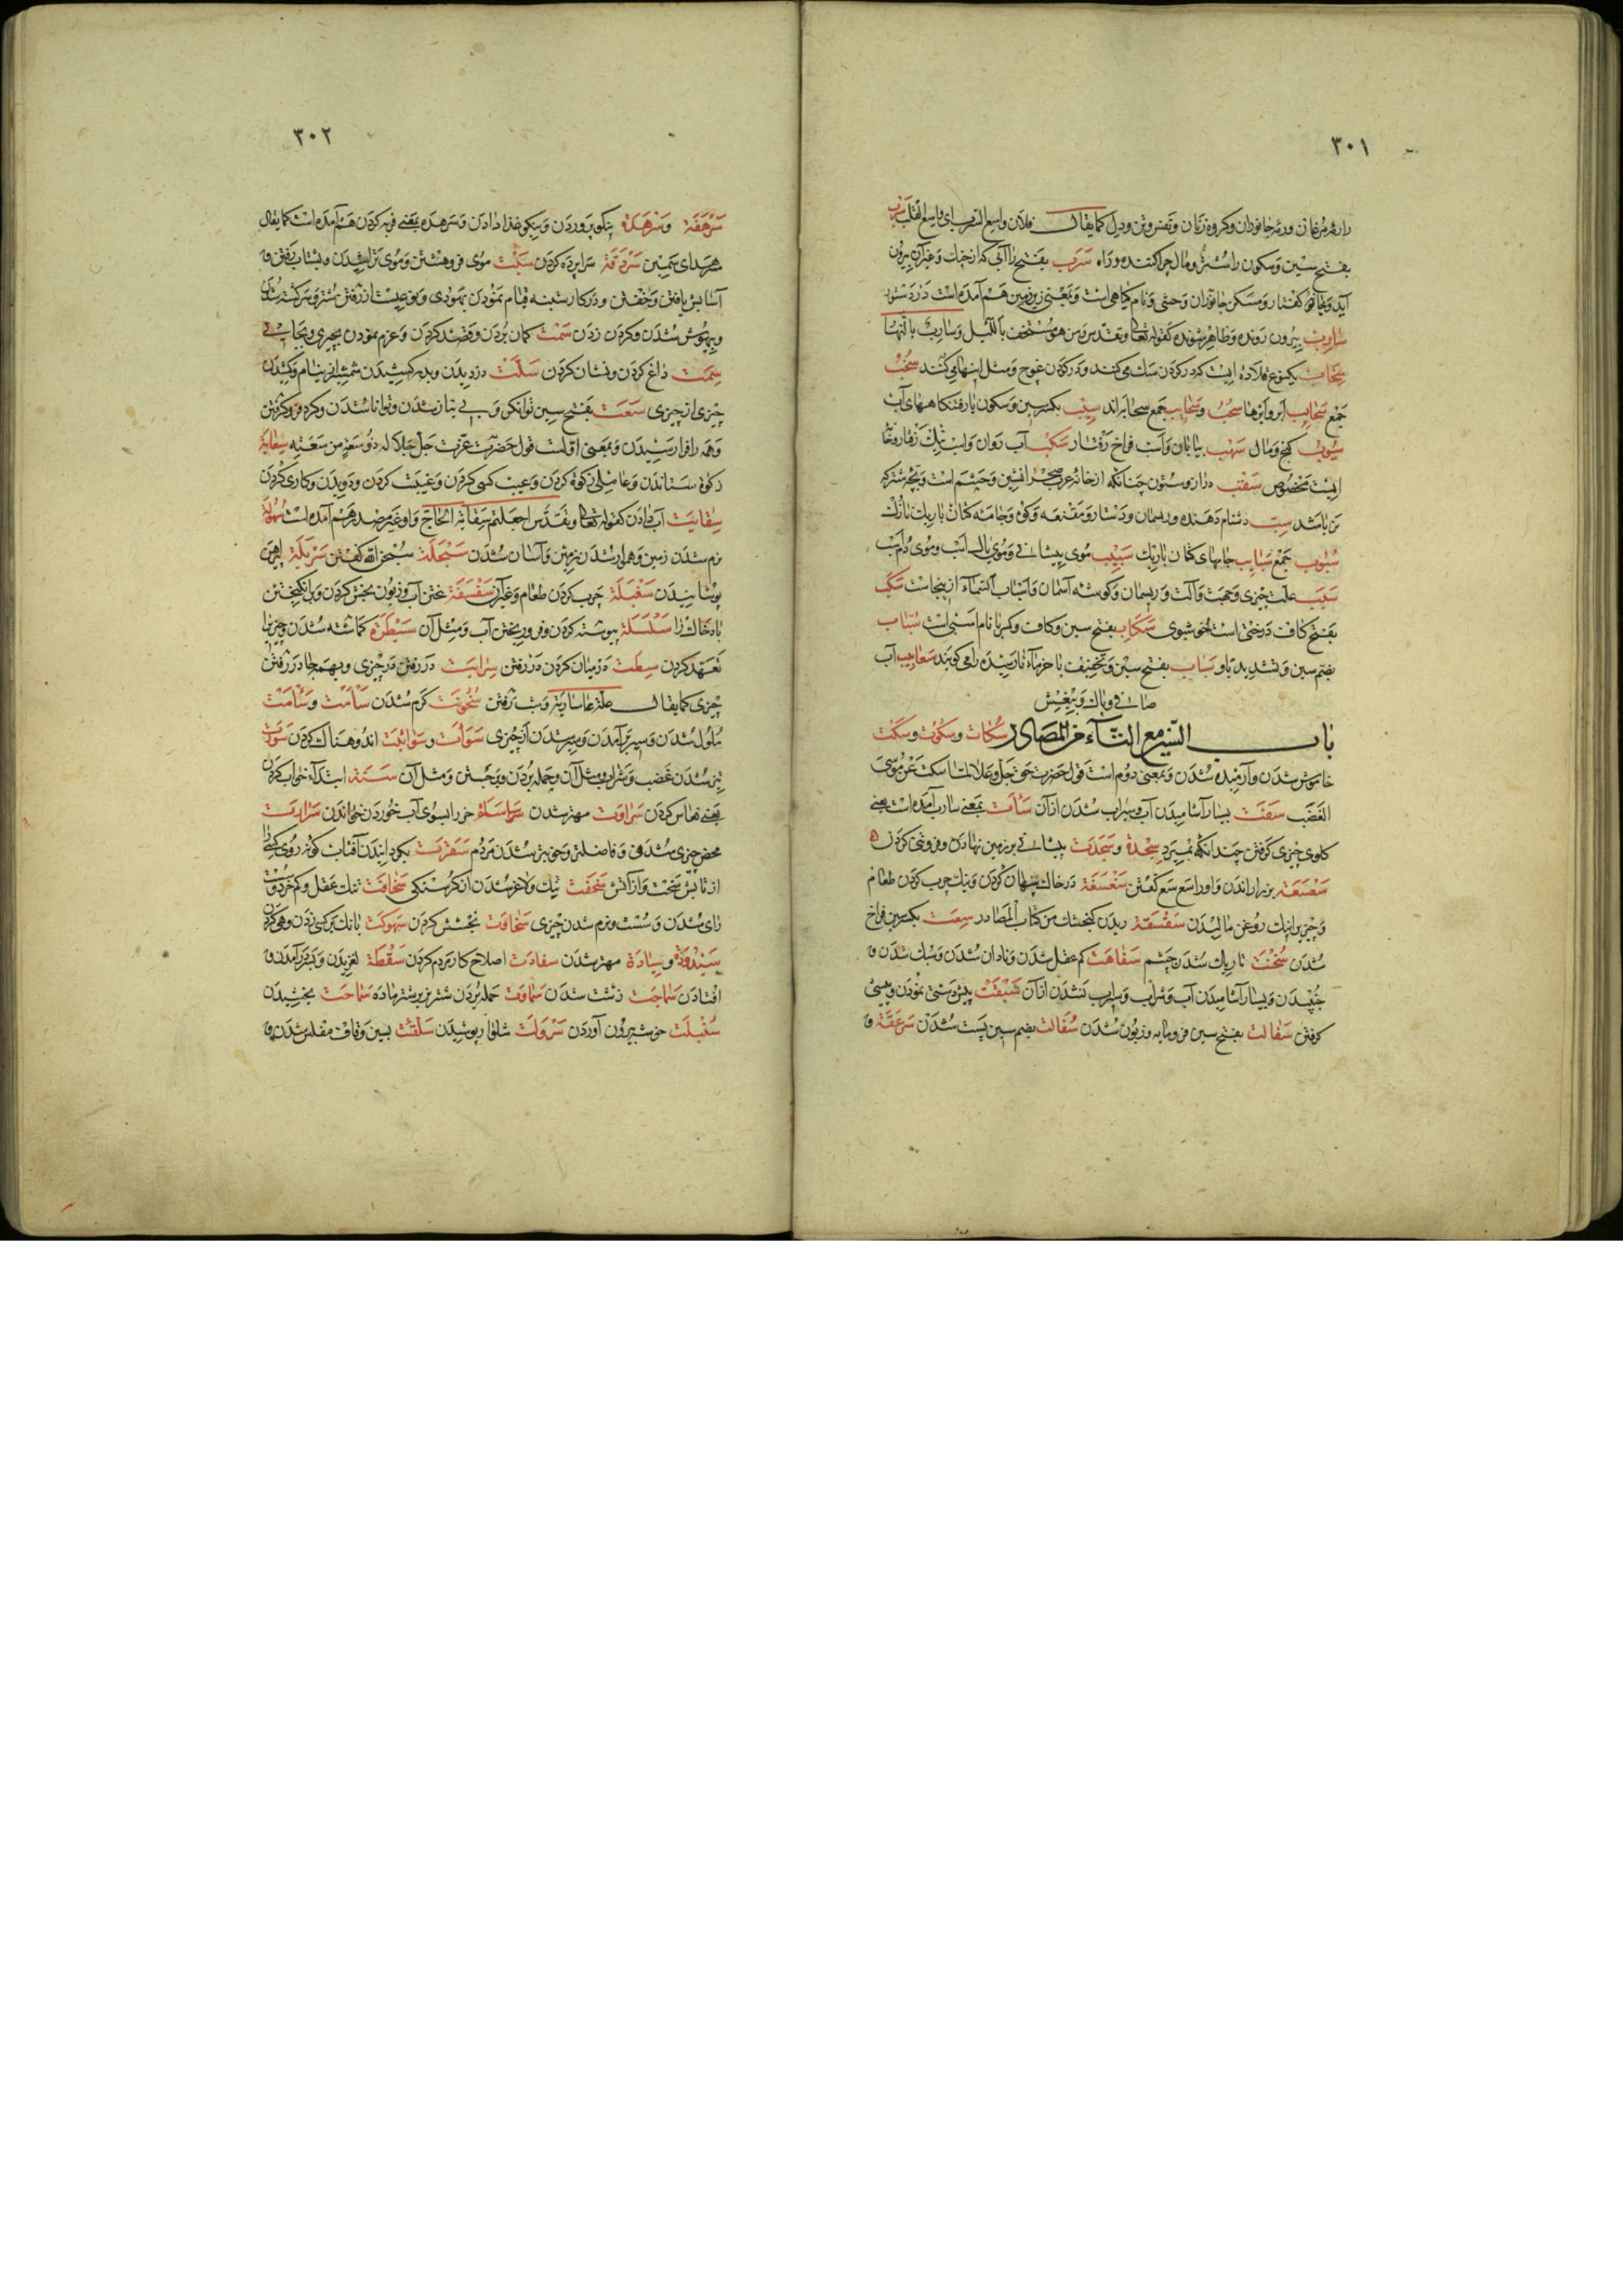 ۳۰۱
دارد مرغان ورمه جانوران و کروه زنان و نفس و تن و دل کما یقال فلان واسع السرب ای واسع القلب سَرْب
بفتح سین و سکون را شتر و مال چرا کننده و راه سَرَب بفتح را آبی که از خیك و غیر آن بیرون
آید و خانهٔ کفتار و مسکن جانوران وحشی و نام کیاهی است و بمعنی زیر زمین هم آمده است در دستور
سارِب بیرون رونده و ظاهر شونده کقوله تعالی و تقدس ومن هو مستخف باللیل وسارب بالنهار
سِخاب یکنوع قلاده ایست که در کردن می کنند سُخُب
جمع سحایب ابر و ابرها سُحُب و سحایب جمع سحابه اند سِیْب بکسر سین و سکون یا رفتنکاههای آب
سُیُوب کنج و مال سَهْب بیابان و اسب فراخ رفتار سَکْب آب روان و اسب نیك رفتار و نام
اسبیست مخصوص سَقْب دراز و ستون چنانکه از خانهٔ عرب صحرا نشین و خشم است و بچه شتر که
نر باشد سِبّ دشنام دهنده و ریسمان و دستار و مقنعه و جامه کتان باریك نازك
سُبُوب جمع سَبایِب جامهای کتان باریك سَبِیْب موی پیشانی و موی یال اسب و موی دم اسب
سَبَب علت چیزی و جهت و آلت و ریسمان و کوشه آسمان و اسباب السماء از ینجاست سَکَب
بفتح کاف درختی است خوشبوی سَکاب بفتح سین و کاف و کسر با نام اسبی است سُیّاب
بضم سین و تشدید یا و سَیاب بفتح سین و تخفیف یا خرماء نارسیده را می کویند سَعابیب آب
صافی و پاك و بی غش
باب السین مع التاء من المصادر سُکات و سُکُوت و سَکْت
خاموش شدن و آرمیده شدن و بمعنی دوم است قول حضرت حق جل و علا لما سکت عن موسی
الغضب سَفَت بسیار آشامیدن آب و سیراب نشدن از آن سَأت بمعنی ساب آمده است یعنی
کلوی چیزی کرفتن چندانکه بمیرد سِجْدة و سَجْدَت پیشانی بر زمین نهادن و فروتنی کردن
سَعْسَعَة بز را راندن و او را سع سع کفتن سَغْسَغَة در خاك پنهان کردن و نیك چرب کردن طعام
و چیزی را نیك روغن مالیدن سَقْسَقَة ریدن کنجشك من کتاب المصادر سِعَت بکسر سین فراخ
شدن سُخْنَت تاریك شدن چشم سَفاهَت کم عقل شدن و نادان شدن و سبك شدن و
جنبیدن و بسیار آشامیدن آب و شراب و سیراب نشدن از آن سَبْقَت پیش دستی نمودن و پیشی
کرفتن سَفالت بفتح سین فرومایه و زبون شدن سُفالت بضم سین پست شدن سَرْعَفَة و
۳۰۲
سَرْهَفَة و سَرْهَدة نیکو پروردن و نیکو غذا دادن و سرهده بمعنی فربه کردن هم آمده است کما یقال
سرهدای سمین سَرْدَقَة سراپرده کردن سَبْت موی فرو هشتن و موی تراشیدن و بشتاب رفتن و
آسایش یافتن و خفتن و در کار شنبه قیام نمودن یهودی و نوعیست از رفتن شتر و سرکشته شدن
و بیهوش شدن و کردن زدن سَمْت کمان بردن و قصد کردن و عزم نمودن بچیزی و بجانبی
سِمَت داغ کردن و نشان کردن سَلَّت دزدیدن و برکشیدن شمشیر از نیام و کشیدن
چیزی از چیزی سَعَت بفتح سین توانکر و بی نیاز شدن و توانا شدن و کرد فرو کرفتن
و همه را فرا رسیدن و بمعنی اولست قول حضرت عزت جل جلاله ذو سعة من سعته سِعایة
زکوة ستاندن و عاملی زکوة کردن و عیب کسی کردن و غیبت کردن و دویدن و کاری کردن
سِقایَت آب دادن کقوله تعالی و تقدس اجعلتم سقایة الحاج و او غیر مصدر هم آمده است سُهُولة
نرم شدن زمین و هموار شدن زمین و آسان شدن سَبْحَلَة سبحان الله کفتن سَرْبَلَة پیرهن
پوشانیدن سَغْبَلَة چرب کردن طعام و غیر آن سَفْسَفَة بیختن آرد و زبون بخش کردن و برانکیختن
باد خاك را سَلْسَلَة پیوسته کردن و فرو ریختن آب و مثل آن سَیْطَرَة کماشته شدن و چیزیرا
تعهد کردن سِطَت در میان کردن در رفتن سِرایَت در رفتن در چیزی و بهمه جا در رفتن
چیزی کما یقال علة ساریة و شب رفتن سُخُونَت کرم شدن سَآمَت و سَأمَت
ملول شدن و سیر بر آمدن و سیر شدن از چیزی سَوَاْت و سَوائِیَت اندوهناك کردن سَوْرَت
تیز شدن غضب و شراب و مثل آن و حمله بردن و برجستن و مثل آن سِنَة ابتداء خواب کردن
یعنی نعاس کردن سَراوَت مهتر شدن سَاْساَة خر را بسوی آب خوردن خواندن سَرارَت
محض چیزی شدن و فاضلترین و بهترین شدن مردم سَفْرَت بکردانیدن آفتاب کونه روی کسی را
از تابش سخت و از آتش سَخْفَت تنك و لاغر شدن از کرسنکی سَخافَت تنك عقل و کم خرد و سست
رای شدن و سست و نرم شدن چیزی سَخاوَت بخشش کردن سُهوکَت بانك بر کسی زدن
سَیْدُودَة و سِیادَة مهتر شدن سفارَت اصلاح کار مردم کردن سَقْطَة لغزیدن و بسر در آمدن و
افتادن سَماجَت زشت شدن سَماوَت حمله بردن شتر نر بر شتر ماده سَماحَت بخشیدن
سُنْبِلَت خوشه بیرون آوردن سَرْوَلَت شلوار پوشیدن سَلْقَت بسین و قاف مفلس شدن و